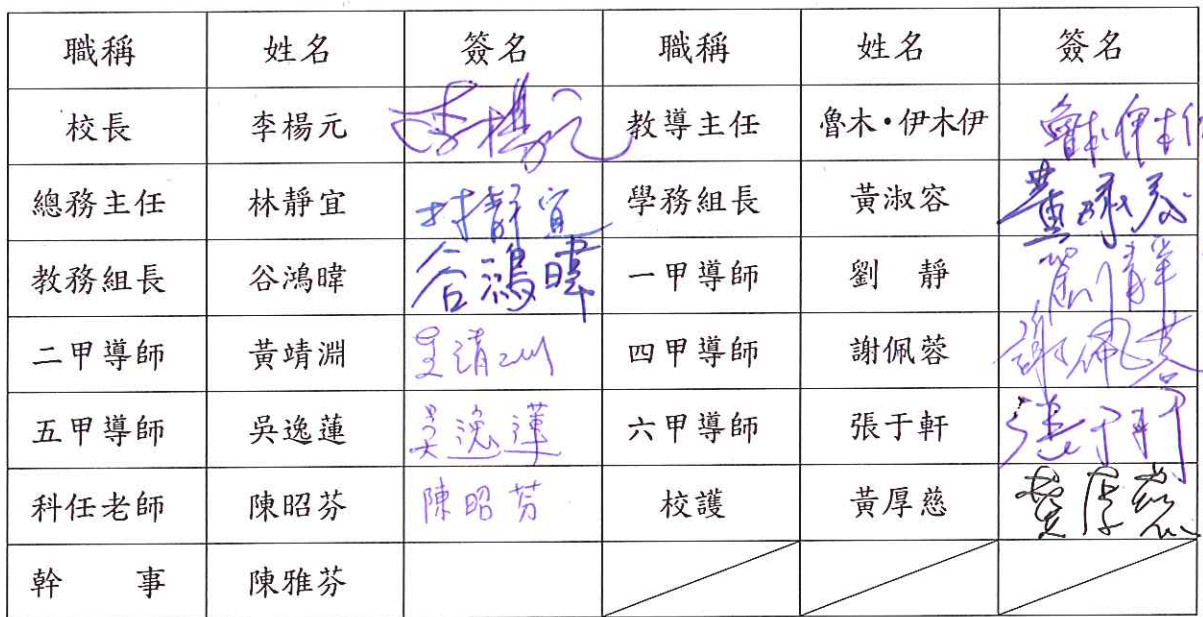 職稱 姓名 簽名 職稱 姓名 簽名
校長 李楊元 李楊元 教導主任 魯木・伊木伊 魯木伊木伊
總務主任 林靜宜 林靜宜 學務組長 黃淑容 黃淑容
教務組長 谷鴻暐 谷鴻暐 一甲導師 劉 靜 劉靜
二甲導師 黃靖淵 黃靖淵 四甲導師 謝佩蓉 謝佩蓉
五甲導師 吳逸蓮 吳逸蓮 六甲導師 張于軒 張于軒
科任老師 陳昭芬 陳昭芬 校護 黃厚慈 黃厚慈
幹 事 陳雅芬